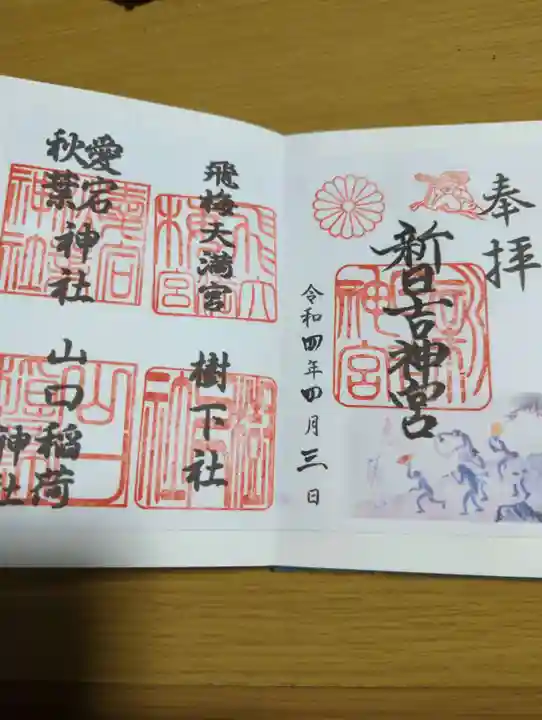 奉拝
新日吉神宮
令和四年四月三日
飛梅天満宮
愛宕
秋葉神社
樹下社
山口稲荷
神社